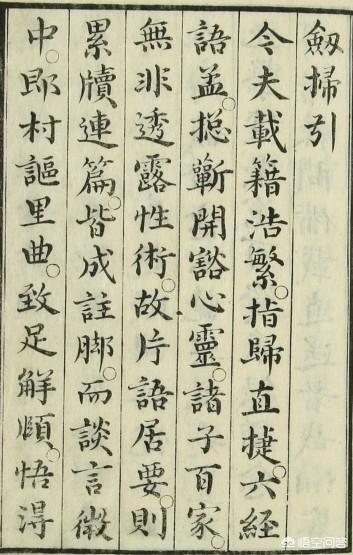 劔掃引
今夫載籍浩繁。指歸直捷。六經
語孟。摠蘄開豁心靈。諸子百家。
無非透露性術。故片語居要。則
累牘連篇。皆成註脚。而談言微
中。即村謳里曲。致足解頤。悟得
悟空问答